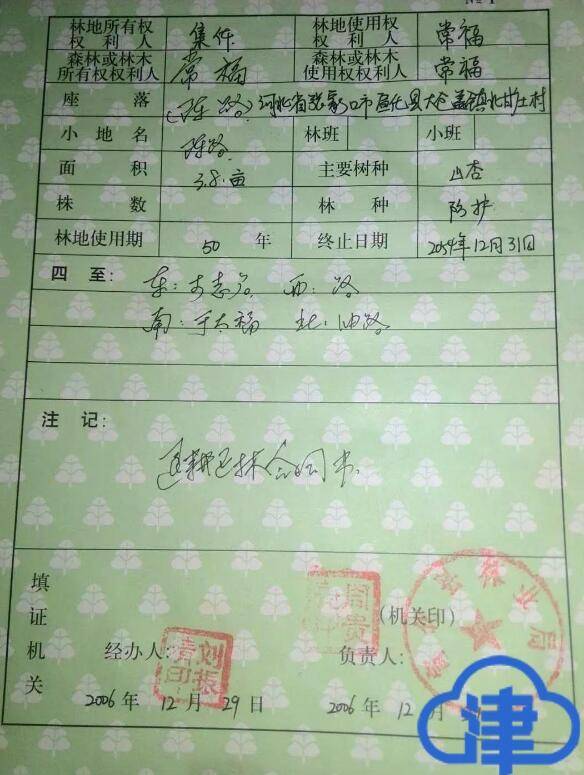 林地所有权权利人 集体 林地使用权权利人 常福
森林或林木所有权权利人 常福 森林或林木使用权权利人 常福
座落 河北省张家口市宣化县大仓盖镇北甘庄村
小地名 林班 小班
面积 3.8亩 主要树种 山杏
株数 林种 防护
林地使用期 50 年 终止日期 2054年12月31日
四至: 东: 西:路
南:于大福 北:
注记:
退耕还林合同书
填证机关
(机关印)
经办人: 刘振清印 负责人:
2006 年 12 月 29 日 2006 年 12 月
津